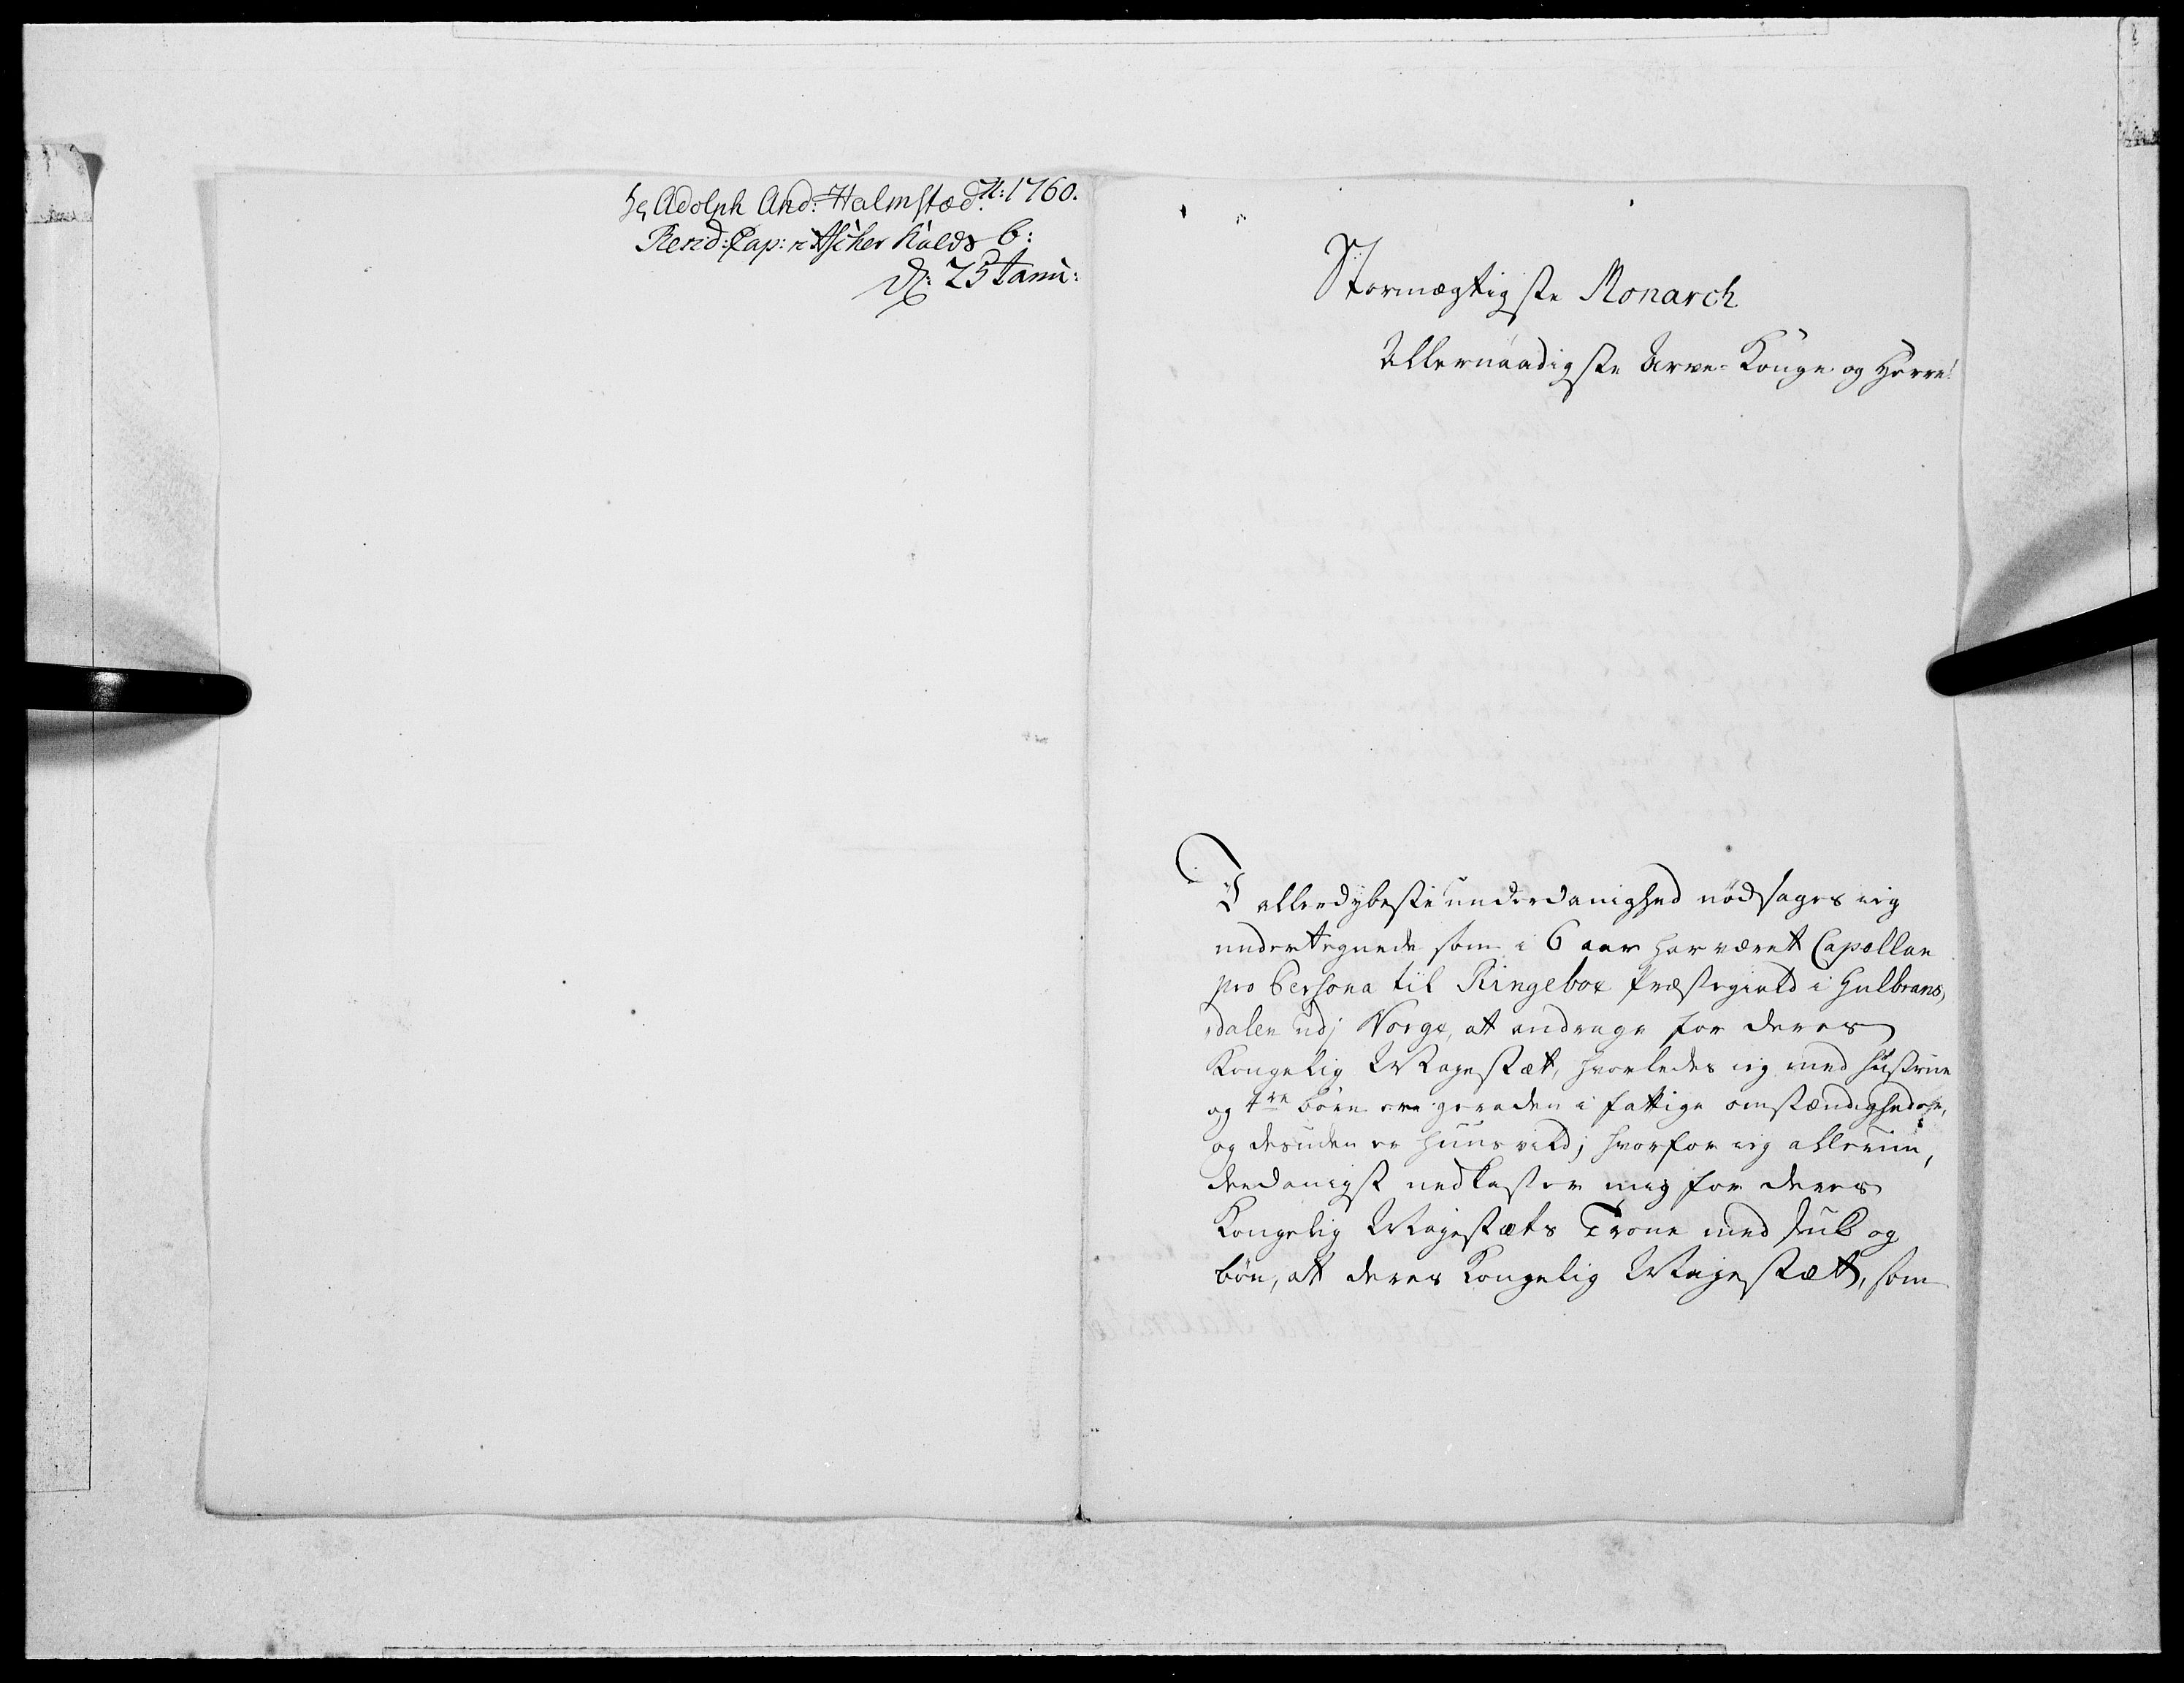 Adolph And: Halmstæd. A: 1760.
Resid: Cap: n Kalds b:
D: 25 Janu:
Stormægtigste Monarch
Allernaadigste Arve-Konge og Herre!
I allerdybeste underdanighed nødsages ieg
undertegnede som i 6 aar har været Capellan
pro Persona til Ringeboe Præstegield i Gulbrans,
dalen udj Norge, at andrage for deres
Kongelig Mayestæt, hvorledes ieg med hustrue
og 4re børn ere geraaden i fattige omstændigheder,
og desuden er huusvild; hvorfor ieg allerun,
derdanigst nedkaster mig for deres
Kongelig Mayestæts Trone med suk og
bøn, at deres Kongelig Mayestæt, som